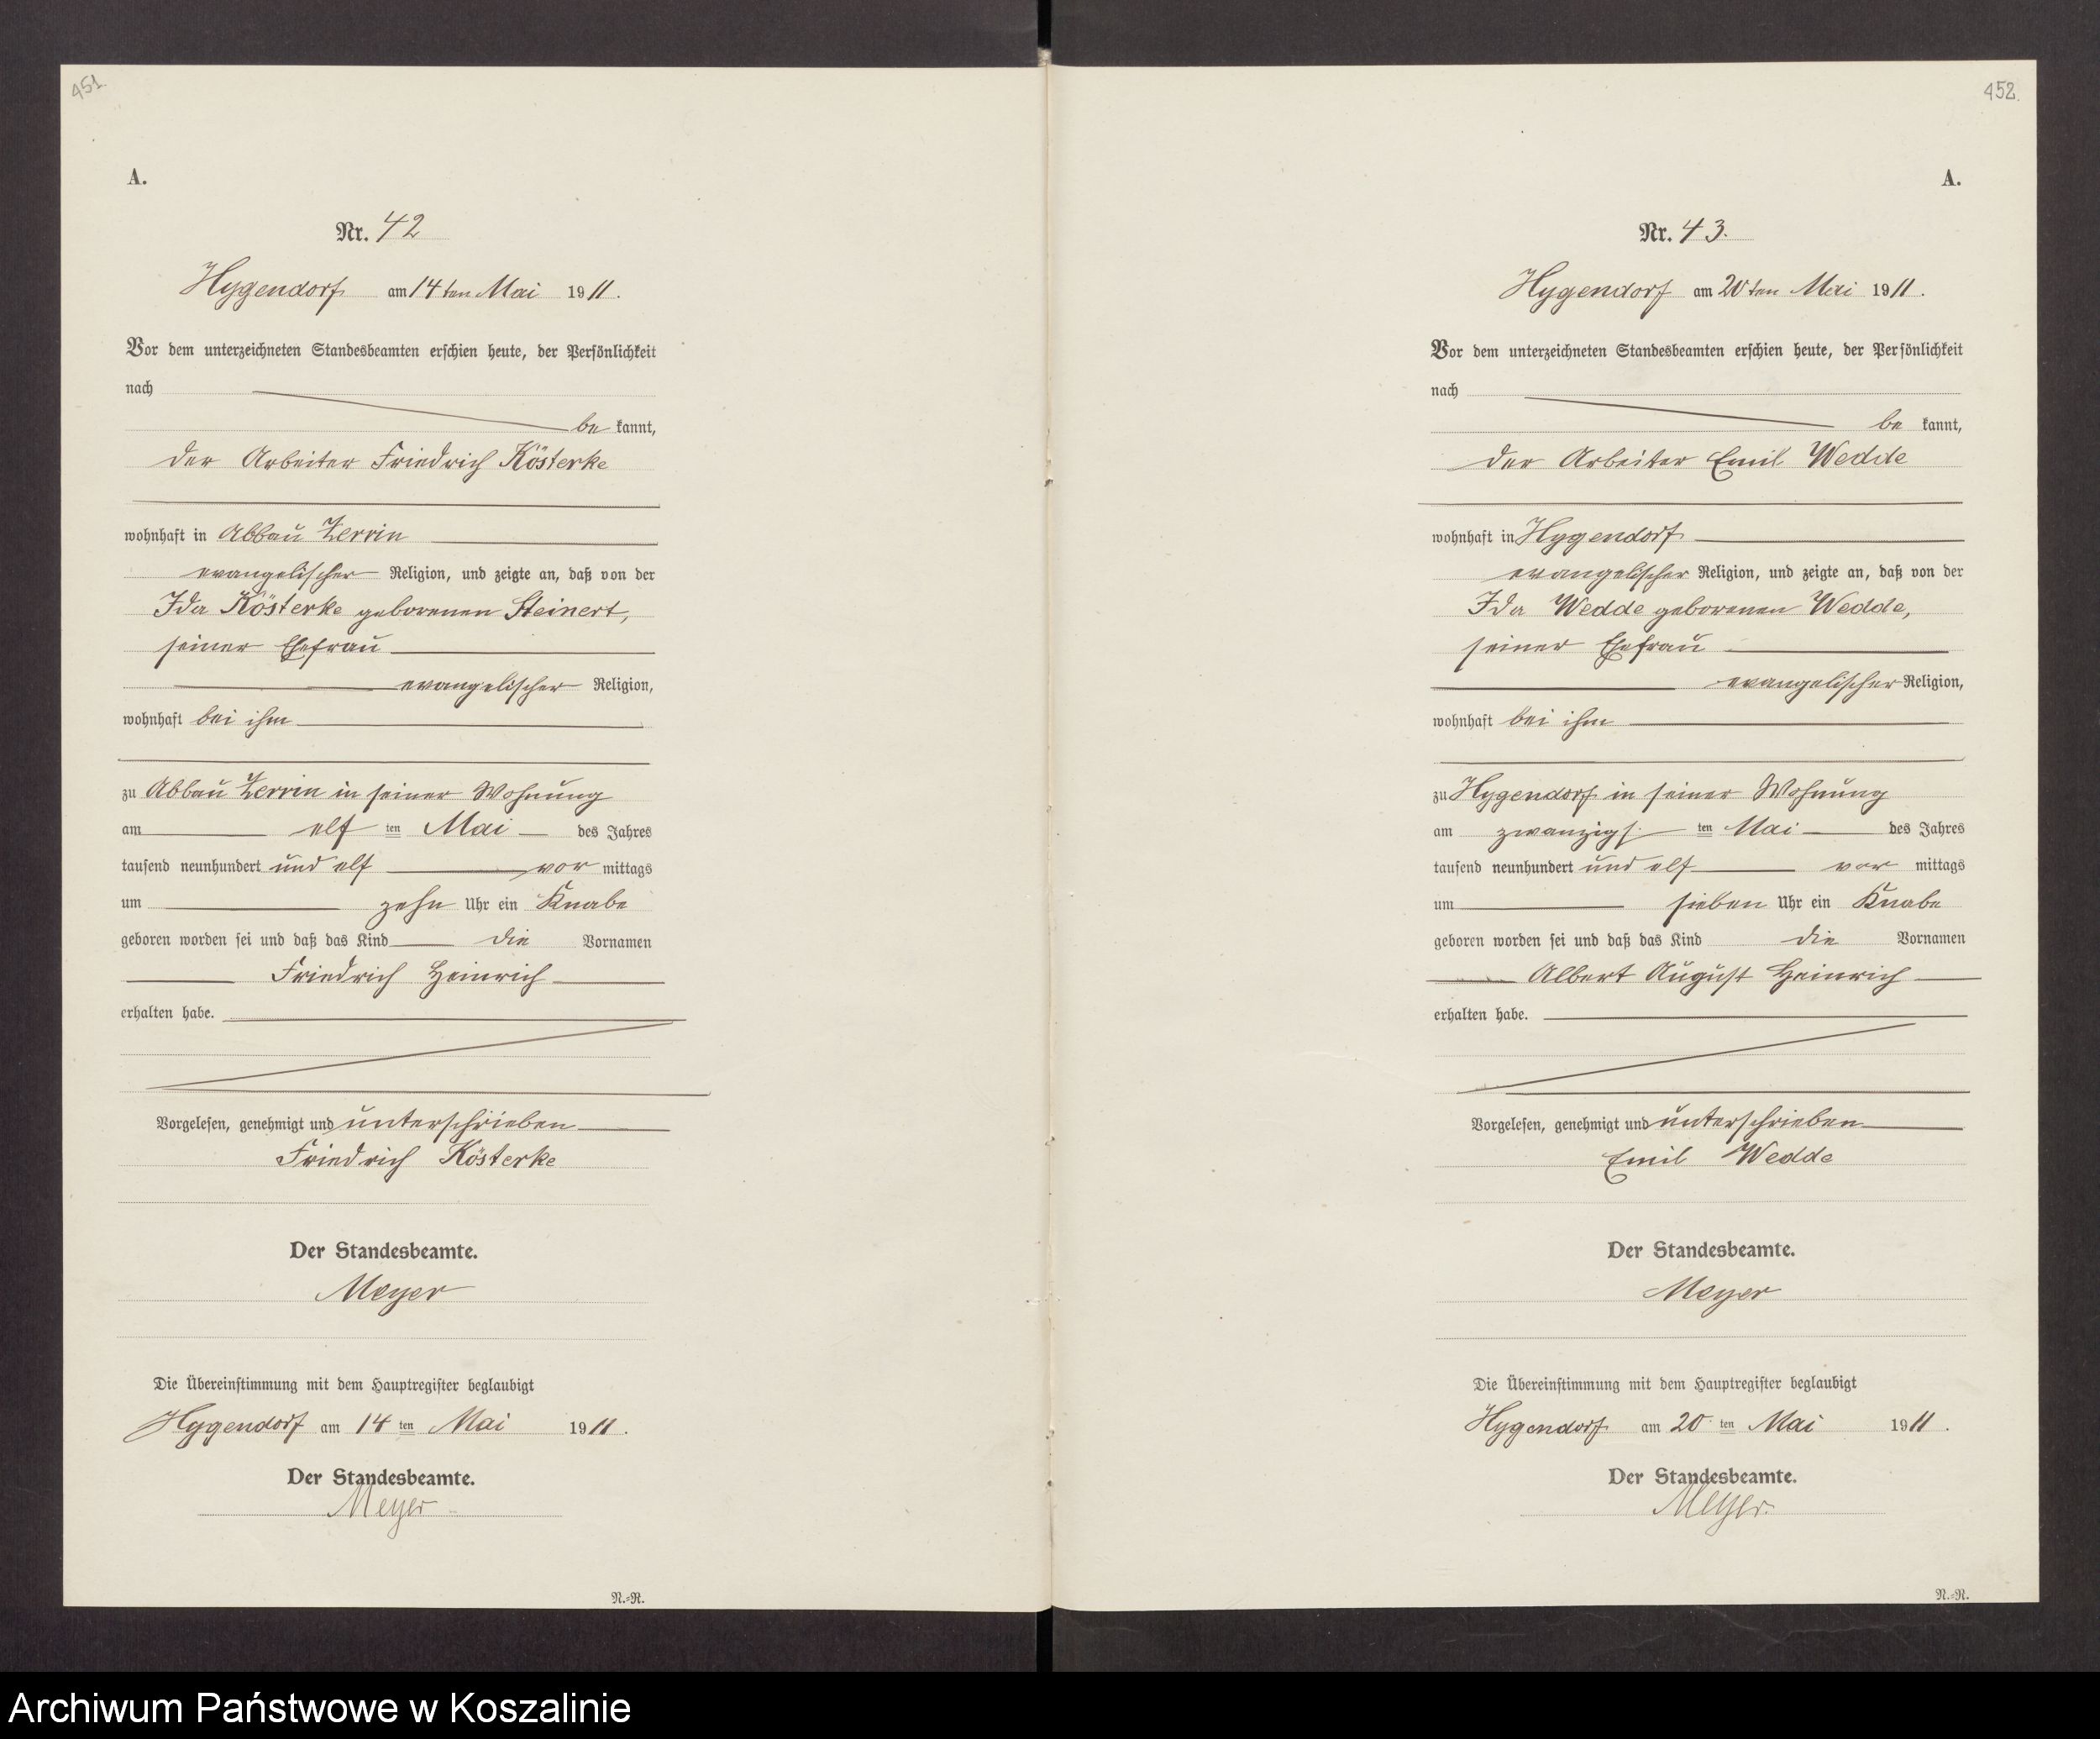 451
A.
Nr. 42
Hygendorf am 14ten Mai 1911.
Vor dem unterzeichneten Standesbeamten erschien heute, der Persönlichkeit
nach
be kannt,
der Arbeiter Friedrich Kösterke
wohnhaft in Abbau Zerrin
evangelischer Religion, und zeigte an, daß von der
Ida Kösterke geborenen Steinert,
seiner Ehefrau
evangelischer Religion,
wohnhaft bei ihm
zu Abbau Zerrin in seiner Wohnung
am elf ten Mai des Jahres
tausend neunhundert und elf vor mittags
um zehn Uhr ein Knabe
geboren worden sei und daß das Kind die Vornamen
Friedrich Heinrich
erhalten habe.
Vorgelesen, genehmigt und unterschrieben
Friedrich Kösterke
Der Standesbeamte.
Meyer
Die Übereinstimmung mit dem Hauptregister beglaubigt
Hygendorf am 14 ten Mai 1911.
Der Standesbeamte.
Meyer
N.=R.
452.
A.
Nr. 43.
Hygendorf am 20ten Mai 1911.
Vor dem unterzeichneten Standesbeamten erschien heute, der Persönlichkeit
nach
be kannt,
der Arbeiter Emil Wedde
wohnhaft in Hygendorf
evangelischer Religion, und zeigte an, daß von der
Ida Wedde geborenen Wedde,
seiner Ehefrau
evangelischer Religion,
wohnhaft bei ihm
zu Hygendorf in seiner Wohnung
am zwanzigs ten Mai des Jahres
tausend neunhundert und elf vor mittags
um sieben Uhr ein Knabe
geboren worden sei und daß das Kind die Vornamen
Albert August Heinrich
erhalten habe.
Vorgelesen, genehmigt und unterschrieben
Emil Wedde
Der Standesbeamte.
Meyer
Die Übereinstimmung mit dem Hauptregister beglaubigt
Hygendorf am 20. ten Mai 1911.
Der Standesbeamte.
Meyer.
N.=R.
Archiwum Państwowe w Koszalinie